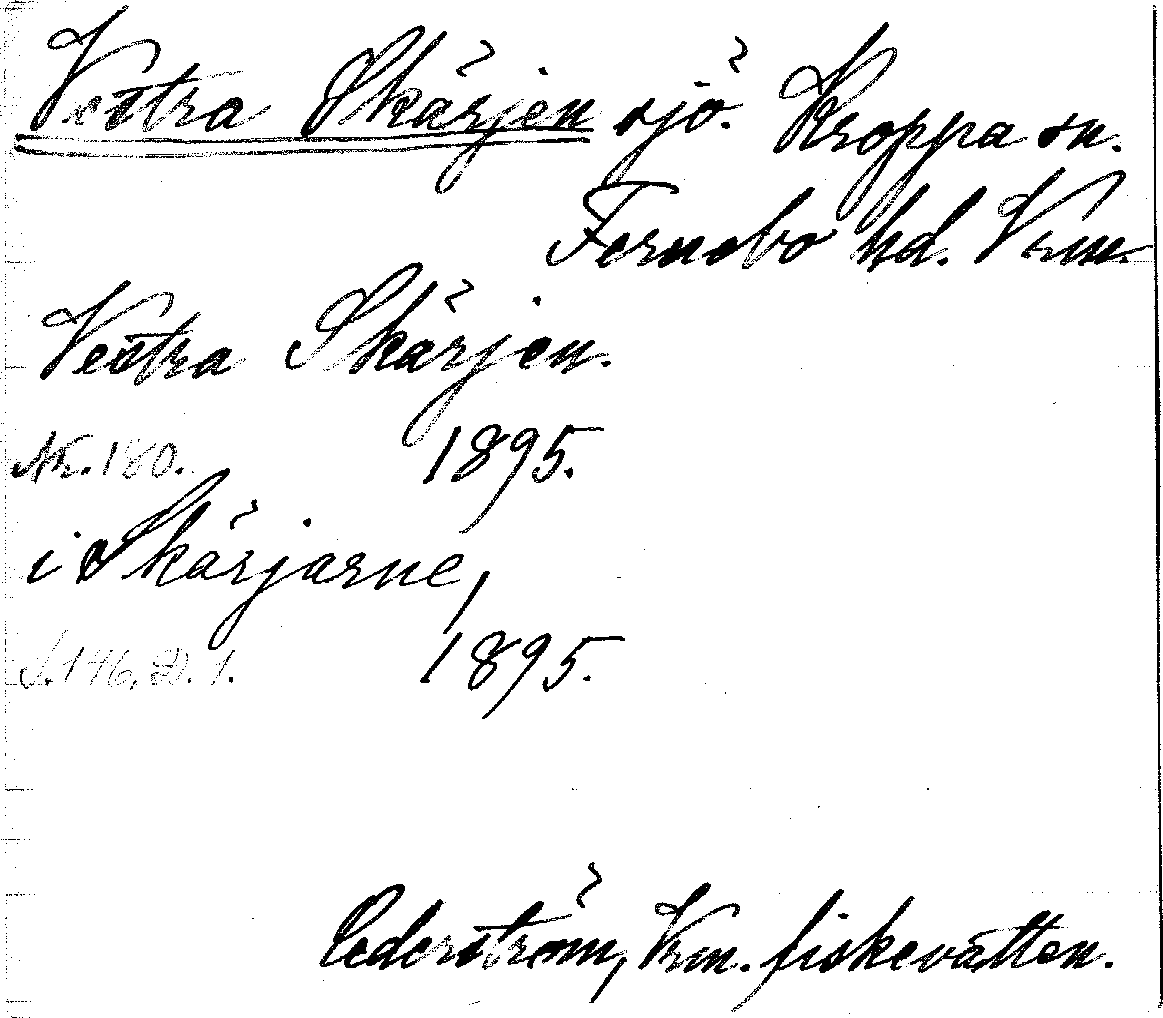 Vestra Skärjen sjö. Kroppa sn.
Fernebo hd. Vrm.
Vestra Skärjen.
Nr. 180. 1895.
i Skärjarne,
S. 146, D. 1. 1895.
Cederström, Vrm. fiskevatten.